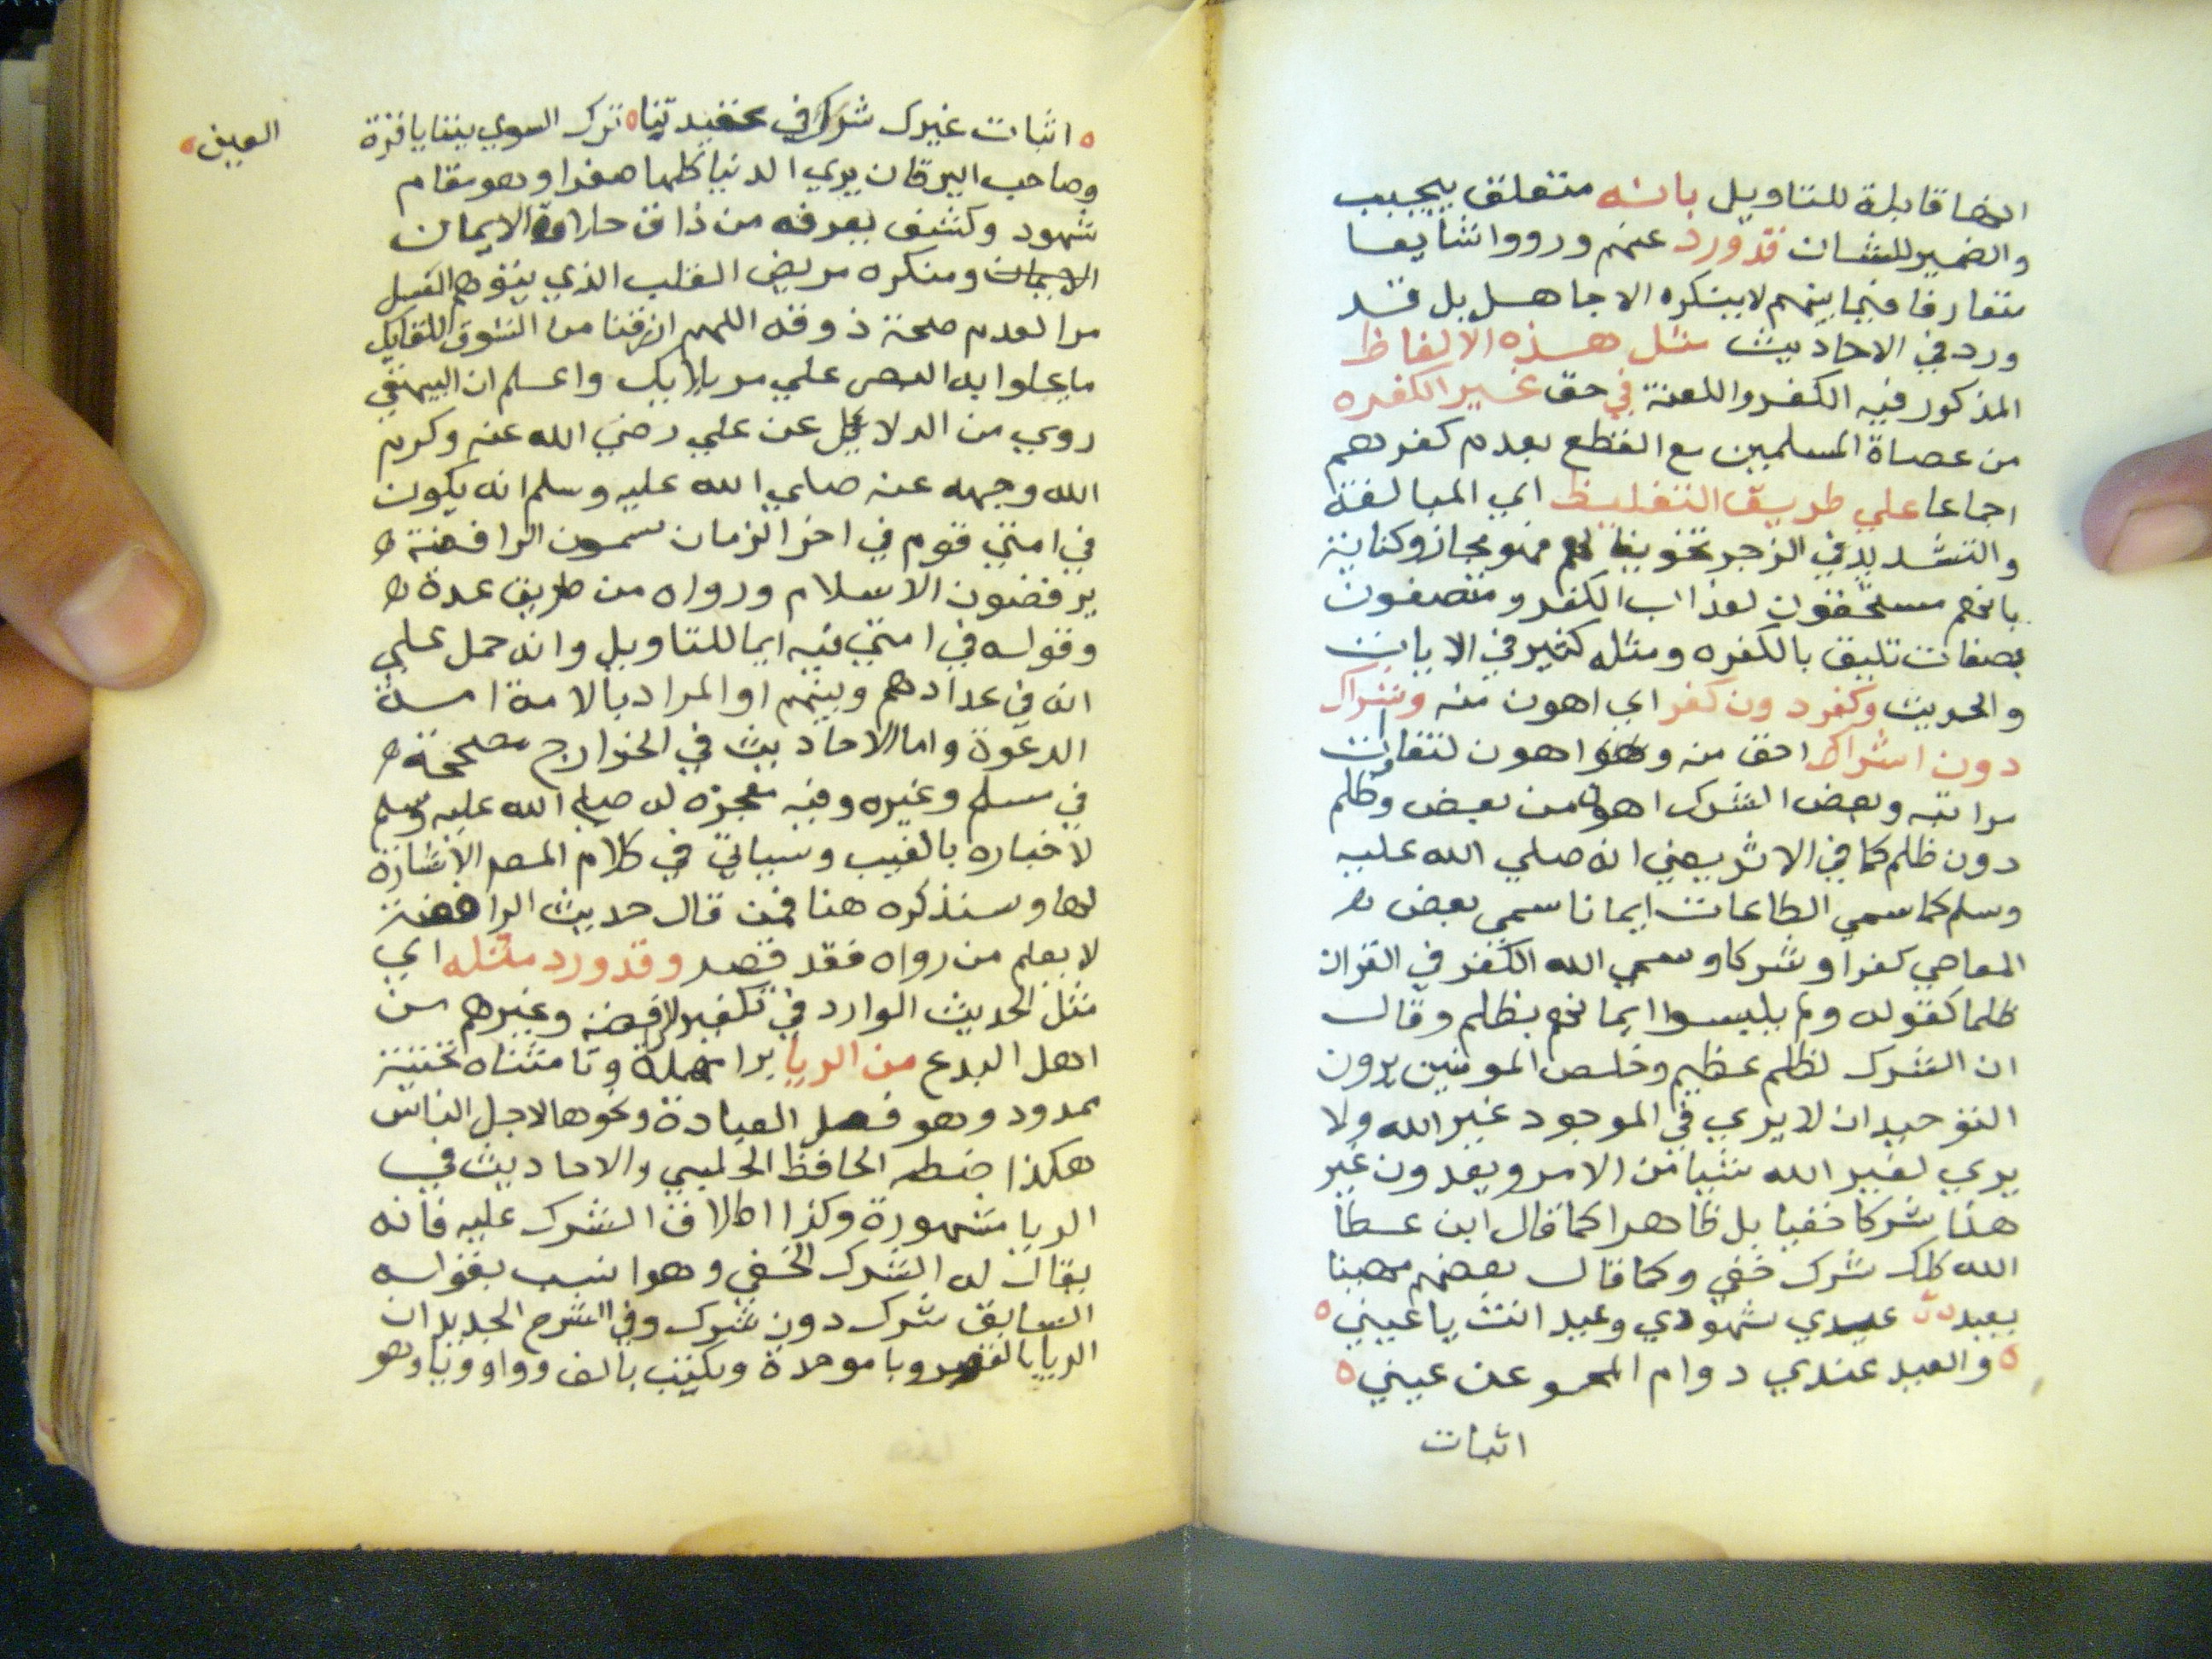 انها قابلة للتاويل بانه متعلق بيجيب
والضمير للشان قد ورد عنهم ورووا شايعا
متعارفا فيما بينهم لا ينكره الا جاهل بل قد
ورد في الاحاديث مثل هذه الالفاظ
المذكور فيه الكفر واللعنة في حق غير الكفره
من عصاة المسلمين مع القطع بعدم كفرهم
اجماعا علي طريق التغليظ اي المبالغة
والتشديد في الزجر تخويفا لهم فهو مجاز وكناية
بانهم مستحقون لعذاب الكفر ومتصفون
بصفات تليق بالكفره ومثله كثير في الايات
والحديث وكفر دون كفر اي اهون منه وشراك
دون اشراك اخف منه وهو اهون لتفاوت
مراتبه وبعض الشرك اهون من بعض وظلم
دون ظلم كما في الاثر يعني انه صلي الله عليه
وسلم كما سمي الطاعات ايمانا سمي بعض
المعاصي كفرا وشركا وسمي الله الكفر في القران
ظلما كقوله ولم يلبسوا ايمانهم بظلم وقال
ان الشرك لظلم عظيم وخلص المومنين يرون
التوحيد ان لا يري في الموجود غير الله ولا
يري لغير الله شيا من الامر ويعدون غير
هذا شركا خفيا بل ظاهرا كما قال ابن عطا
الله كلك شرك خفي وكما قال بعضهم
بعيد عيدي شهودي وعيد انت يا عيني
والعيد عندي دوام المحو عن عيني
اثبات
اثبات غيرك شرك في عقيدتنا ترك السوي ديننا يا قرة
العين
وصاحب اليرقان يري الدنيا كلها صفرا وهو مقام
شهود وكشف يعرفه من ذاق حلاوة الايمان
الايمان ومنكره مريض القلب الذي يتوهم العسل
مرا لعدم صحة ذوقه اللهم ارزقنا من الشوق للقايك
ما يعلوا به الصبر علي مر بلايك واعلم ان البيهقي
روي من الدلايل عن علي رضي الله عنه وكرم
الله وجهه عنه صلي الله عليه وسلم انه يكون
في امتي قوم في اخر الزمان يسمون الرافضة
يرفضون الاسلام ورواه من طريق عدة
وقوله في امتي فيه ايما للتاويل وانه حمل علي
انه في عدادهم وبينهم او المراد بالامة امة
الدعوة واما الاحاديث في الخوارج صحيحة
في مسلم وغيره وفيه معجزة له صلي الله عليه وسلم
لاخباره بالغيب وسياتي في كلام المص الاشارة
لها وسنذكره هنا فمن قال حديث الرافضة
لا يعلم من رواه فقد قصر وقد ورد مثله اي
مثل الحديث الوارد في تكفير الرافضة وغيرهم من
اهل البدع من الريا برا مهملة ويا مثناه تحتية
ممدود وهو فعل العبادة ونحوها لاجل الناس
هكذا ضبطه الحافظ الحلبي والاحاديث في
الريا مشهورة وكذا اطلاق الشرك عليه فانه
يقال له الشرك الخفي وهو انسب بقوله
السابق شرك دون شرك وفي الشرح الجديد ان
الربا بالقصر وبا موحدة ويكتب بالف وواو ويا وهو